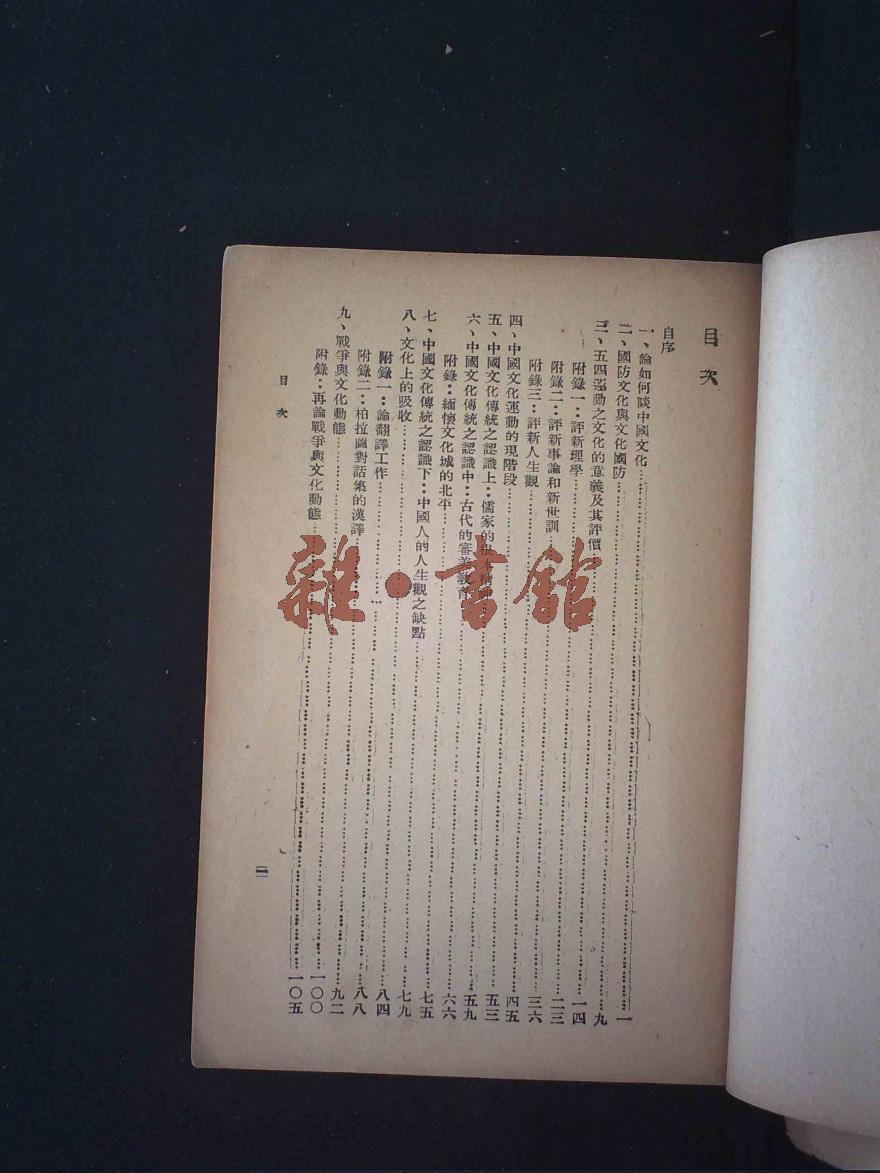 目次
自序
一、論如何談中國文化……一
二、國防文化與文化國防……九
三、五四運動之文化的意義及其評價……一四
附錄一：評新理學……二三
附錄二：評新事論和新世訓……三六
附錄三：評新人生觀……四五
四、中國文化運動的現階段……五三
五、中國文化傳統之認識上：儒家的根本精神……五九
六、中國文化傳統之認識中：古代的審美教育……六六
附錄：緬懷文化城的北平……七五
七、中國文化傳統之認識下：中國人的人生觀之缺點……七九
八、文化上的吸收……八四
附錄一：論翻譯工作……八八
附錄二：柏拉圖對話集的漢譯……九二
九、戰爭與文化動態……一〇〇
附錄：再論戰爭與文化動態……一〇五
目次
一
雜·書館